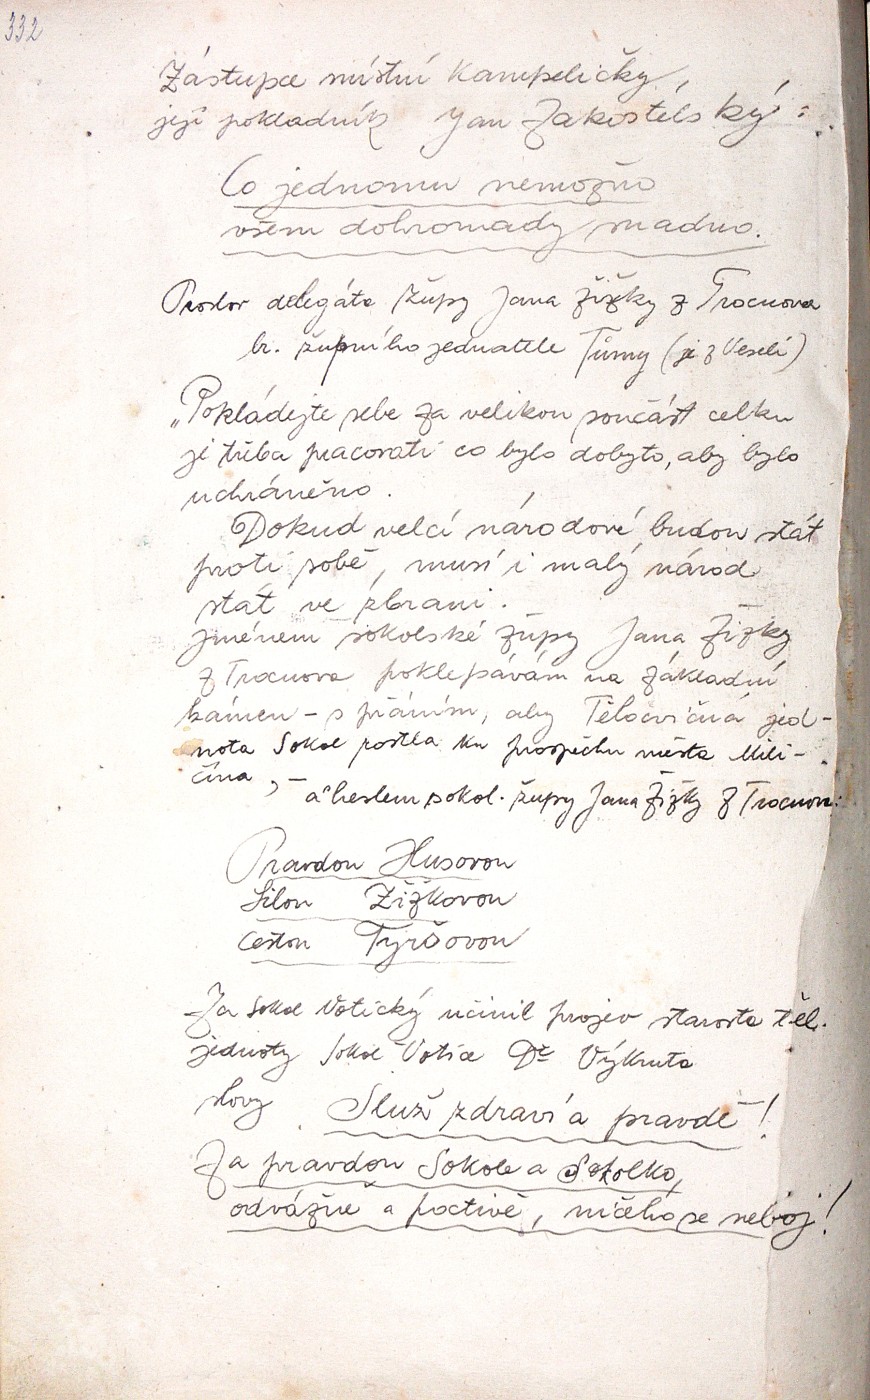 332
Zástupce místní Kampeličky,
její pokladník Jan Zakostelský:
Co jednomu nemožno
všem dohromady snadno.
Proslov delegáta župy Jana Žižky z Trocnova
br. župního jednatele Tůmy (je z Veselí)
„Pokládejte sebe za velikou součást celku
je třeba pracovati co bylo dobyto, aby bylo
uchráněno.
Dokud velcí národové budou stát
proti sobě, musí i malý národ
stát ve zbrani.
Jménem sokolské župy Jana Žižky
z Trocnova poklepávám na základní
kámen – s přáním, aby Tělocvičná jed-
nota Sokol rostla ku prospěchu města Mili-
čína, –
a heslem sokol. župy Jana Žižky z Trocnova:
Pravdou Husovou
Silou Žižkovou
Cestou Tyršovou
Za Sokol Votický učinil projev starosta těl.
jednoty Sokol Votice Dr Výkruta
slovy Služ zdraví a pravdě!
Za pravdou Sokole a Sokolko,
odvážně a poctivě, ničeho se neboj!